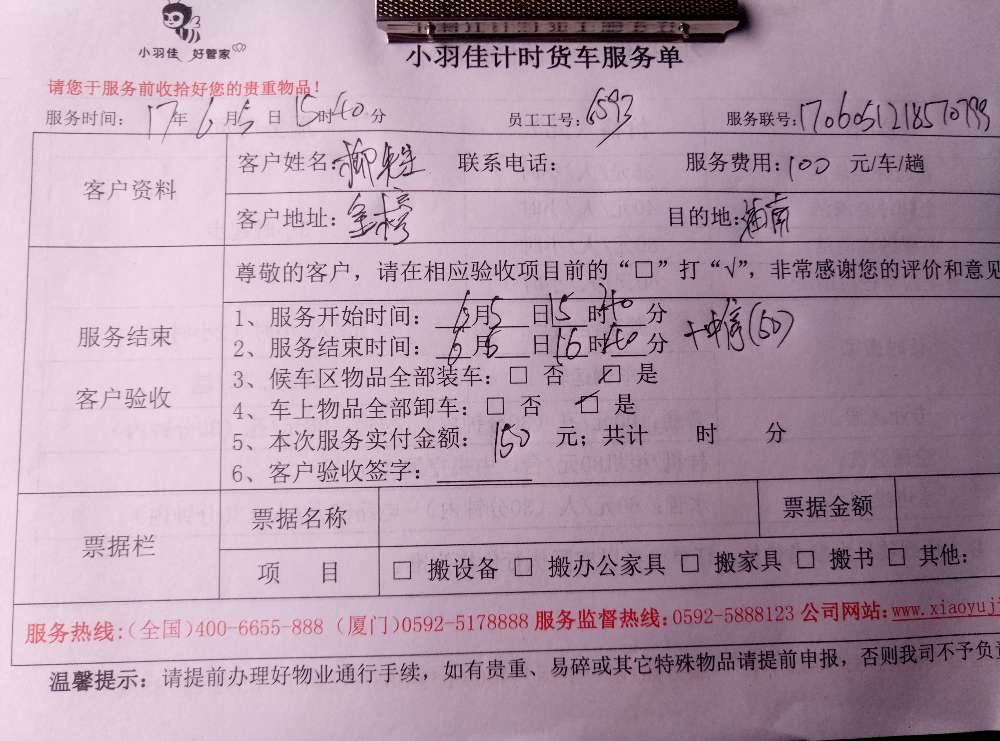 小羽佳 好管家
小羽佳计时货车服务单
请您于服务前收拾好您的贵重物品！
服务时间： 17 年 6 月 5 日 15 时 40 分 员工工号：6593 服务联号：170605121857079
客户资料
客户姓名：柳先生 联系电话： 服务费用：100 元/车/趟
客户地址：金榜 目的地：莲南
尊敬的客户，请在相应验收项目前的“□”打“√”，非常感谢您的评价和意见
服务结束
客户验收
1、服务开始时间： 6 月 5 日 15 时 40 分
2、服务结束时间： 6 月 5 日 16 时 40 分 (50)
3、候车区物品全部装车：□ 否 ☑ 是
4、车上物品全部卸车：□ 否 ☑ 是
5、本次服务实付金额： 150 元；共计 时 分
6、客户验收签字：
票据栏
票据名称 票据金额
项 目 □ 搬设备 □ 搬办公家具 □ 搬家具 □ 搬书 □ 其他：
服务热线:(全国)400-6655-888 (厦门)0592-5178888 服务监督热线:0592-5888123 公司网站:www.xiaoyuji
温馨提示：请提前办理好物业通行手续，如有贵重、易碎或其它特殊物品请提前申报，否则我司不予负责